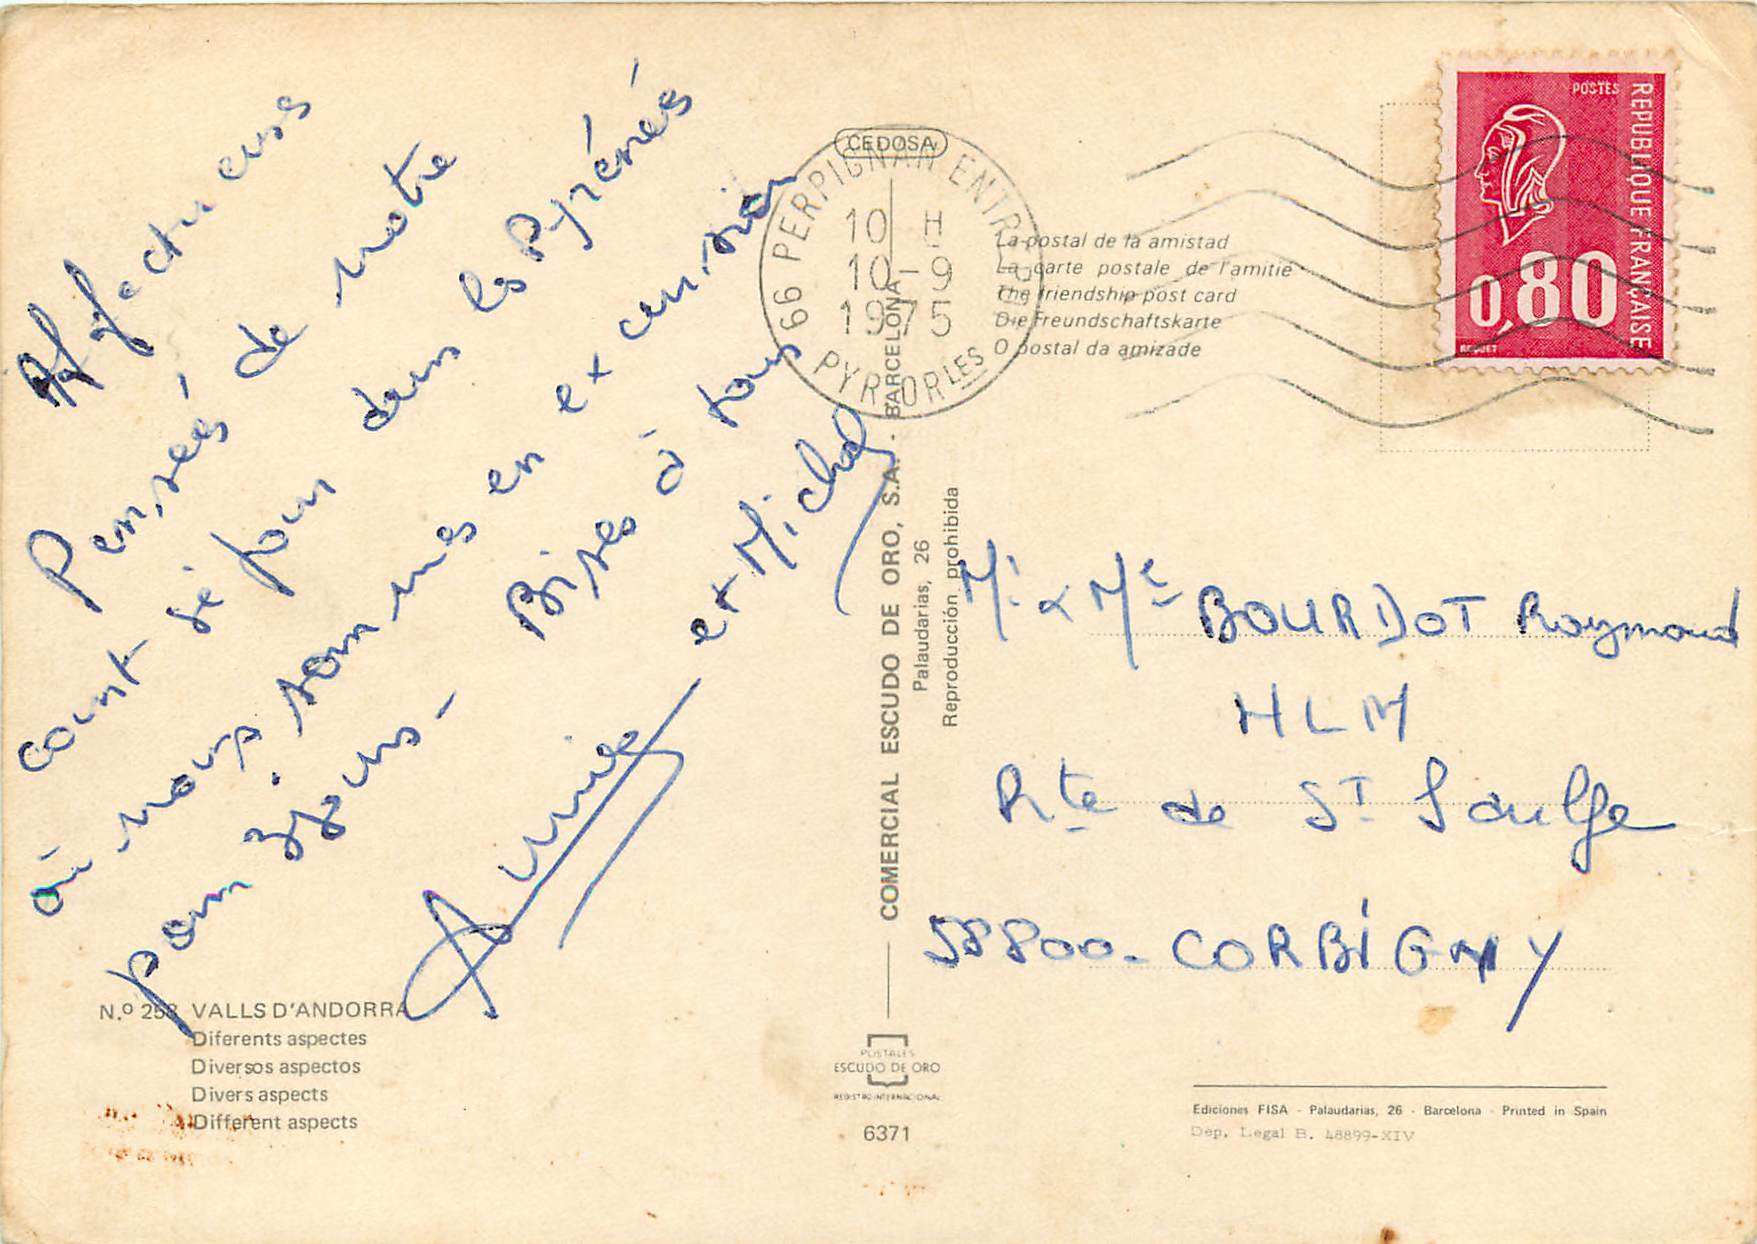 Affectueuses
Pensées de notre
court séjour dans les Pyrénées
où nous sommes en excursion
pour 3 jours - Bises à tous
Annie et Michel
N.º 258 VALLS D'ANDORRA
Diferents aspectes
Diversos aspectos
Divers aspects
Different aspects
CEDOSA
COMERCIAL ESCUDO DE ORO, S.A. - BARCELONA
Palaudarias, 26
Reproducción prohibida
POSTALES
ESCUDO DE ORO
REGISTRO INTERNACIONAL
6371
66 PERPIGNAN ENTREPOT
10 H
10-9
1975
PYR. ORLES
La postal de la amistad
La carte postale de l'amitie
The friendship post card
Die Freundschaftskarte
O postal da amizade
POSTES
REPUBLIQUE FRANÇAISE
0,80
BEQUET
Mr & Me BOURDOT Raymond
HLM
Rte de St Saulge
58800 - CORBIGNY
Ediciones FISA - Palaudarias, 26 - Barcelona - Printed in Spain
Dep. Legal B. 48899-XIV